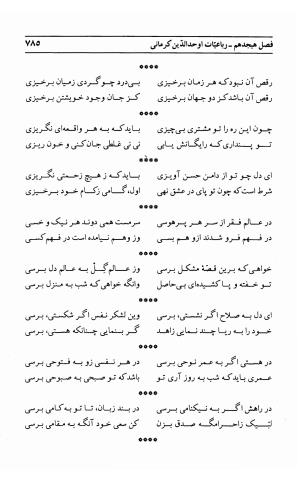 فصل هیجدهم ـ رباعیّات اوحدالدّین کرمانی ۷۸۵
****
رقص آن نبود که هر زمان برخیزی بی‌درد چو گردی ز میان برخیزی
رقص آن باشد کز دو جهان برخیزی کز جان وجود خویشتن برخیزی
****
چون این ره را تو مشتری بی‌چیزی باید که به هر واقعه‌ای نگریزی
تو پنداری که رایگانش یابی نی نی غلطی جان کنی و خون ریزی
****
ای دل چو تو از دامن حسن آویزی باید که ز هیچ زحمتی نگریزی
شرط است که چون تو پای در عشق نهی اول، گامی ز کام خود برخیزی
****
در عالم فقر از سر هر پرهوسی سرمست همی دوند هر نیک و خسی
در فهم فرو شدند ازو هم بسی وز وهم نیامده است در فهم کسی
****
خواهی که برین قصّهٔ مشکل برسی وز عالم گِلْ به عالم دل برسی
تو خفته و پا کشیده‌ای بی‌حاصل وانگه خواهی که شب به منزل برسی
****
ای دل به صلاح اگر نشستی، برسی وین لشکر نفس اگر شکستی، برسی
خود را به ریا چند نمایی زاهد گر بنمایی چنانکه هستی، برسی
****
در هستی اگر به عمر نوحی برسی در هر نفسی زو به فتوحی برسی
عمری باید که شب به روز آری تو باشد که تو صبحی به صبوحی برسی
****
در راهش اگر به نیکنامی برسی در بند زبان، تا تو به کامی برسی
لبّیک ز احرامگه صدق بزن کن سعی خود آنگه به مقامی برسی
****